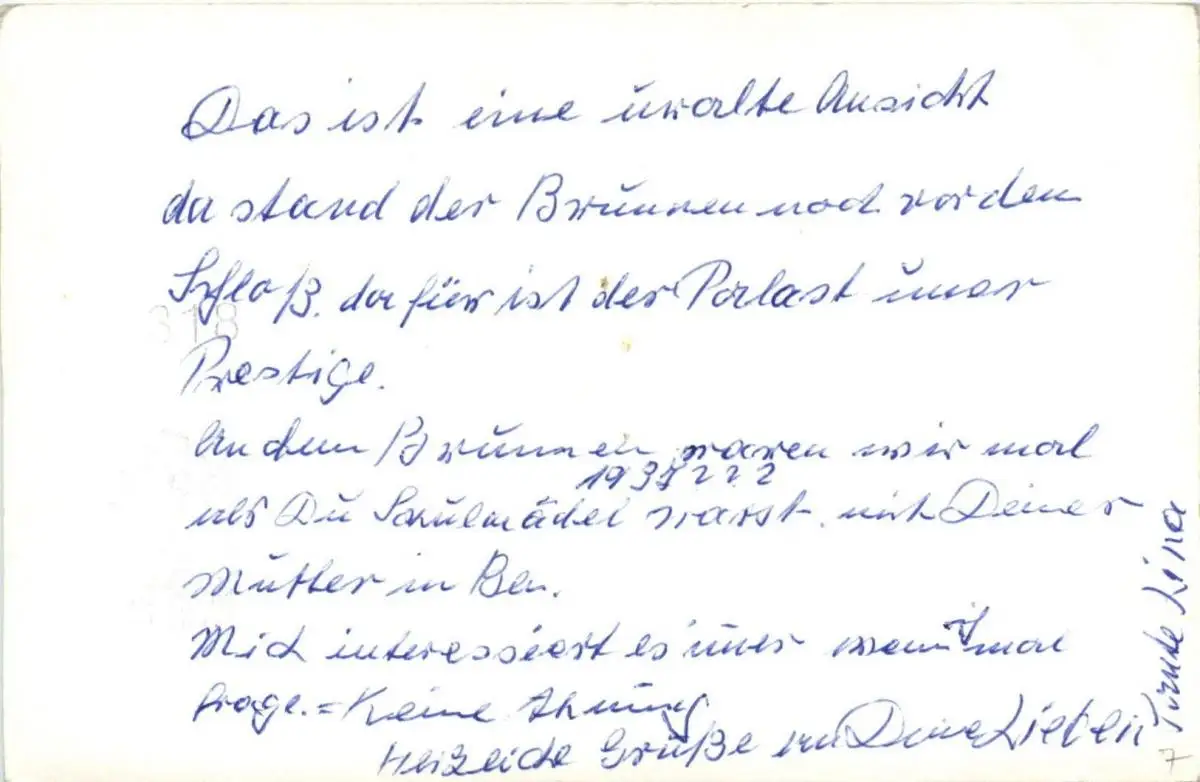 Das ist eine uralte Ansicht
da stand der Brunnen noch vor dem
Schloß. dafür ist der Palast unser
Prestige.
An dem Brunnen waren wir mal
1937 ? ? ?
als Du Schulmädel warst. mit Deiner
Mutter in Bln.
Mich interessiert es immer wenn ich mal
frage. = Keine Ahnung
Herzliche Grüße an Deine Lieben
Tante Lina
318
7